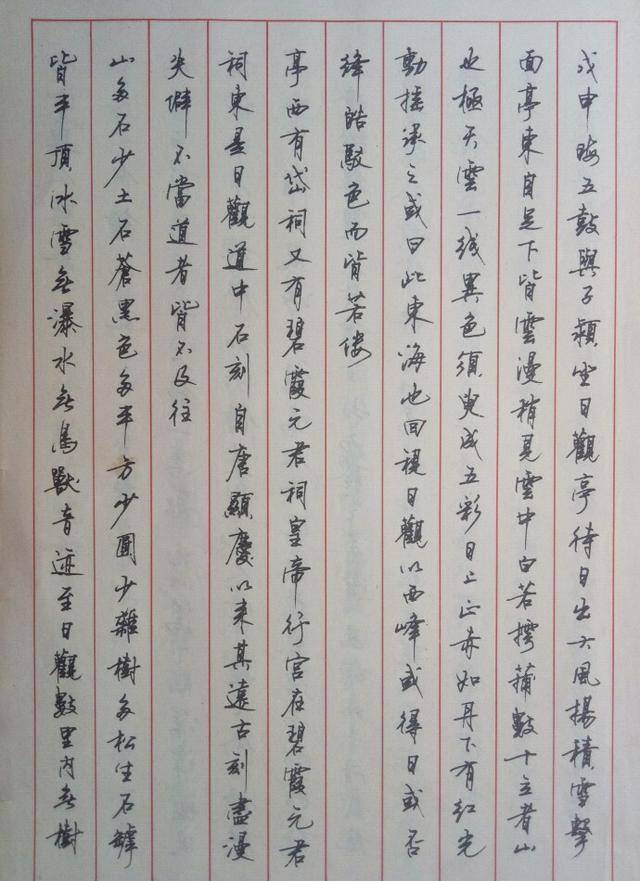 戊申晦五鼓與子潁坐日觀亭待日出大風揚積雪擊
面亭東自足下皆雲漫稍見雲中白若摴蒱數十立者山
也極天雲一线異色須臾成五彩日上正赤如丹下有红光
動摇承之或曰此東海也回視日觀以西峰或得日或否
絳皓駁色而皆若偻
亭西有岱祠又有碧霞元君祠皇帝行宫在碧霞元君
祠東是日觀道中石刻自唐顯慶以来其遠古刻盡漫
失僻不當道者皆不及往
山多石少土石蒼黑色多平方少圓少雜樹多松生石罅
皆平頂冰雪無瀑水無鳥獸音迹至日觀數里内無樹